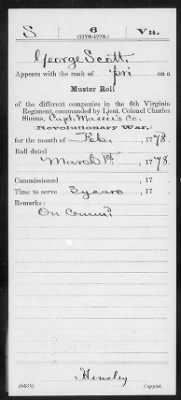 S 6 Va.
(1776-1778.)
George Scott
Appears with the rank of pri on a
Muster Roll
of the different companies in the 6th Virginia
Regiment, commanded by Lieut. Colonel Charles
Simms, Capt. Massie's Co.
Revolutionary War,
for the month of Feb. , 1778
Roll dated
March 1st , 1778.
Commissioned , 17
Time to serve 2 years , 17
Remarks:
On Commd
Hensley
Copyist.